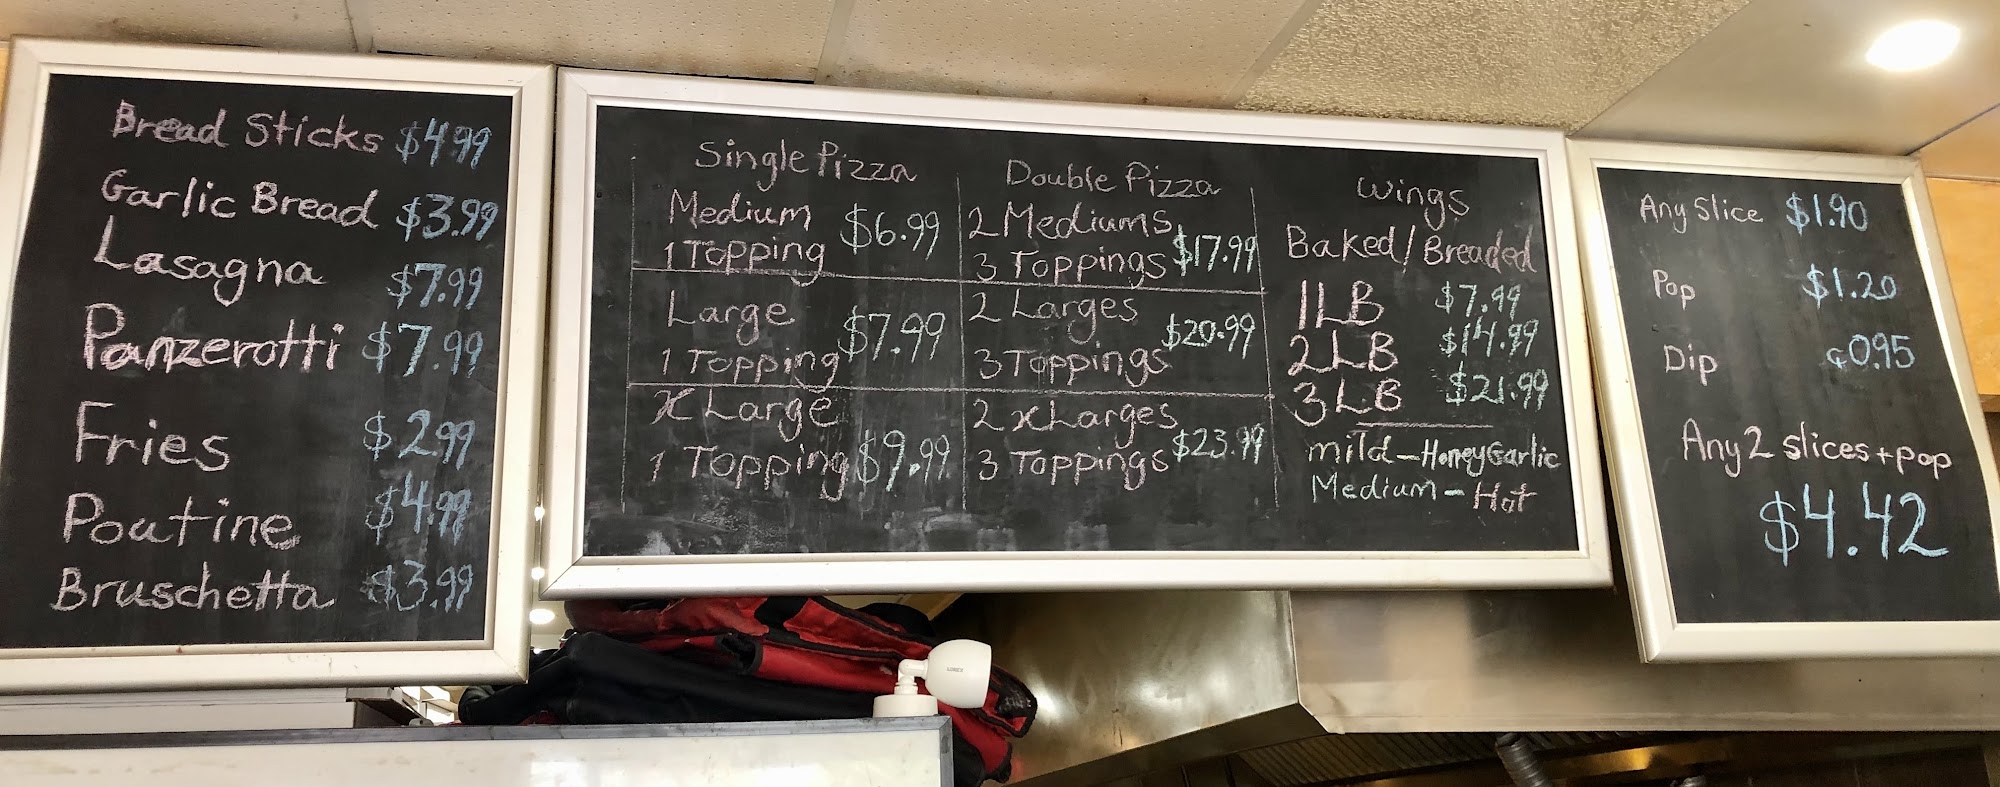 Bread Sticks $4.99
Garlic Bread $3.99
Lasagna $7.99
Panzerotti $7.99
Fries $2.99
Poutine $4.99
Bruschetta $3.99
Single Pizza
Medium
1 Topping $6.99
Large
1 Topping $7.99
X Large
1 Topping $9.99
Double Pizza
2 Mediums
3 Toppings $17.99
2 Larges
3 Toppings $20.99
2 xLarges
3 Toppings $23.99
Wings
Baked/Breaded
1LB $7.99
2LB $14.99
3LB $21.99
mild - Honey Garlic
Medium - Hot
Any Slice $1.90
Pop $1.20
Dip 0.95
Any 2 slices + pop
$4.42
LOREX